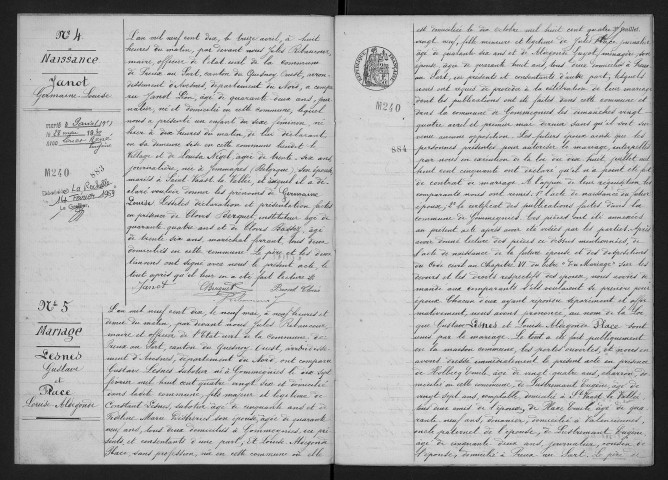 N° 4
Naissance
Janot
Germaine Louise
M240
883
La Rochelle
L'an mil neuf cent dix, le onze avril, à huit
heures du matin, par devant nous Jules Rebaucour
maire, officier de l'état civil de la commune
de Preux au Sart, canton du Quesnoy Ouest, arron-
dissement d'Avesnes, département du Nord, a comparu
Janot Léon, âgé de quarante deux ans,
né et domicilié en cette commune, lequel
nous a présenté un enfant du sexe féminin, né
hier à dix heures du matin, de lui déclarant,
en sa demeure sise en cette commune
village et de Louisa Nigot, âgée de trente six ans,
journalière, née de Jemmapes (Belgique) son épouse
mariés à Saint Waast la Vallée, lequel il a dé-
claré vouloir donner les prénoms de Germaine
Louise. Lesdites déclaration et présentation faites
en présence de Clovis Berquet, instituteur âgé de
quarante quatre ans et de Clovis
âgé de trente six ans, maréchal ferrant, tous deux
domiciliés en cette commune. Le père et les deux
témoins ont signé avec nous le présent acte
après qu'il leur en a été fait lecture
Janot Berquet
N° 5
Mariage
Lesnes
Gustave
et
Place
Louise Aldegonde
L'an mil neuf cent dix, le neuf mai, à neuf heures et
demie du matin, par devant nous Jules Rebaucour,
maire et officier de l'Etat civil de la Commune de
Preux au Sart, canton du Quesnoy Ouest, arrondisse-
ment d'Avesnes, département du Nord, ont comparu
Gustave Lesnes sabotier né à Gommegnies le dix sept
février mil huit cent quatre vingt six et domicilié
dans ladite commune, fils majeur et légitime de
Constant Lesnes, sabotier âgé de cinquante ans et de
son épouse âgée de quarante
neuf ans, tous deux domiciliés à Gommegnies, ici pré-
sents et consentants d'une part, et Louise Aldegonde
Place, sans profession, née en cette commune où elle
est domiciliée le dix octobre mil huit cent quatre
vingt neuf, fille mineure et légitime de Jules Place journalier
âgé de quarante six ans et de Aldegonde Guyot, ménagère son
épouse, âgée de quarante huit ans, tous deux domiciliés à Preux
au Sart, ici présents et consentants d'autre part, lesquels
nous ont requis de procéder à la célébration de leur mariage
dont les publications ont été faites dans cette commune et
dans la commune de Gommegnies les dimanches vingt
quatre avril et premier mai derniers sans qu'il soit sur-
venu aucune opposition. Les futurs époux ainsi que les
personnes présentes pour autoriser le mariage, interpellés
par nous en exécution de la loi du dix huit juillet mil
huit cent cinquante ont déclaré qu'il n'a pas été fait
de contrat de mariage. A l'appui de leur réquisition les
comparants nous ont remis: 1° l'acte de naissance du futur
époux, 2° le certificat des publications faites dans la commune
de Gommegnies. Ces pièces ont été annexées
au présent acte après avoir été visées par les parties. Après
avoir donné lecture des pièces ci dessus mentionnées, de
l'acte de naissance de la future épouse et des dispositions
du Code civil au Chapitre VI du titre "du Mariage" sur les
devoirs et les droits respectifs des époux, nous avons de-
mandé aux comparants s'ils veulent se prendre pour
époux. Chacun d'eux ayant répondu séparément et affir-
mativement, nous avons prononcé, au nom de la Loi
que Gustave Lesnes et Louise Aldegonde Place sont
unis par le mariage. Le tout a été fait publiquement
en la maison commune, les portes ouvertes, et nous en
avons dressé immédiatement le présent acte en présence
de Emile, âgé de vingt quatre ans, charron, do-
micilié en cette commune, de Instrument Eugène, âgé de
vingt sept ans, comptable, domicilié à St Waast la Vallée,
tous deux amis de l'époux, de Place Emile, âgé de qua-
rante neuf ans, domicilié à Valenciennes,
oncle paternel de l'épouse, de Instrument Eugène,
âgé de cinquante deux ans, journalier, cousin de
l'épouse, domicilié à Preux au Sart. Le père de
M240
884